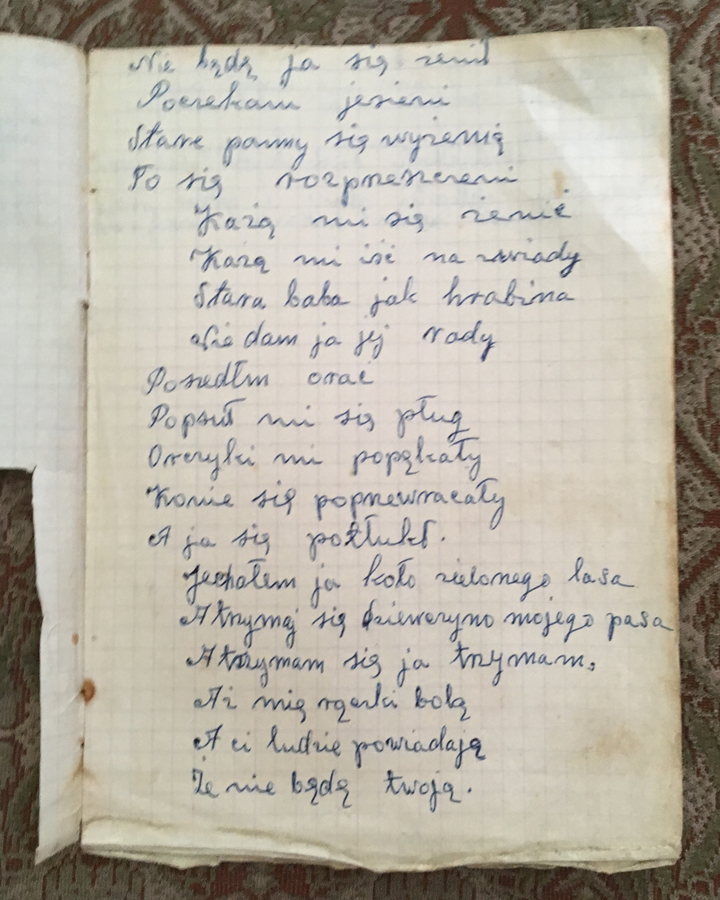 Nie będę ja się żenił
Poczekam jesieni
Stare panny się wyżenią
To się rozprzeszczeni
Każą mi się żenić
Każą mi iść na zwiady
Stara baba jak hrabina
Nie dam ja jej rady
Poszedłm orać
Popsuł mi się pług
Orczyki mi popękały
Konie się poprzewracały
A ja się potłukł.
Jechałem ja koło zielonego lasa
A trzymaj się dzieweczyno mojego pasa
A trzymam się ja trzymam,
Aż mię rączki bolą
A ci ludzie powiadają
Że nie będę twoją.